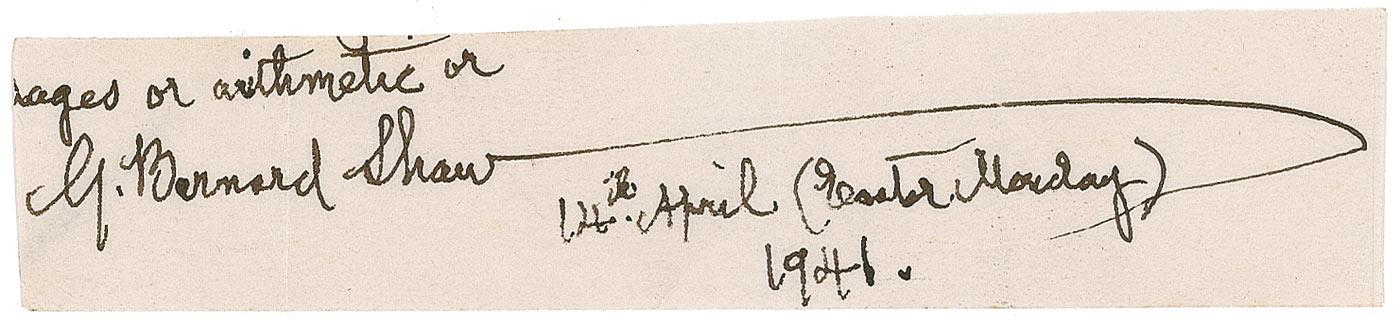 ages or arithmetic or
G. Bernard Shaw
14th. April (Easter Monday)
1941.